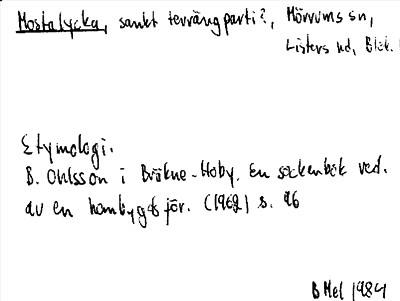 Mostalycka, sankt terrängparti?, Mörrums sn,
Listers hd, Blek.
Etymologi.
B. Ohlsson i Bräkne-Hoby. En sockenbok red.
av en hembygdsför. (1962) s. 96
B Mel 1984